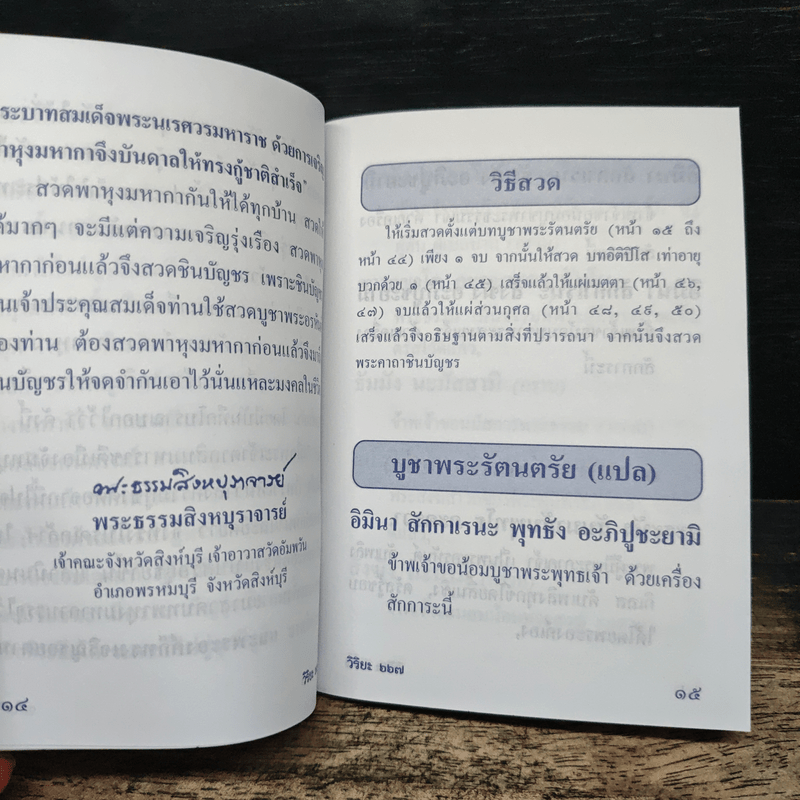 ระบาทสมเด็จพระนเรศวรมหาราช ด้วยการเจริญ
าหุงมหากาจึงบันดาลให้ทรงกู้ชาติสำเร็จ"
สวดพาหุงมหากากันให้ได้ทุกบ้าน สวดให้
ด้มากๆ จะมีแต่ความเจริญรุ่งเรือง สวดพาหุง
มหากาก่อนแล้วจึงสวดชินบัญชร เพราะชินบัญชร
นเจ้าประคุณสมเด็จท่านใช้สวดบูชาพระอรหันต์
องท่าน ต้องสวดพาหุงมหากาก่อนแล้วจึงมา
นบัญชรให้จดจำกันเอาไว้นั่นแหละมงคลในชีวิ
พระธรรมสิงหบุราจารย์
พระธรรมสิงหบุราจารย์
เจ้าคณะจังหวัดสิงห์บุรี เจ้าอาวาสวัดอัมพวัน
อำเภอพรหมบุรี จังหวัดสิงห์บุรี
วิริยะ
๑๔
วิธีสวด
ให้เริ่มสวดตั้งแต่บทบูชาพระรัตนตรัย (หน้า ๑๕ ถึง
หน้า ๔๔) เพียง ๑ จบ จากนั้นให้สวด บทอิติปิโส เท่าอายุ
บวกด้วย ๑ (หน้า ๔๕) เสร็จแล้วให้แผ่เมตตา (หน้า ๔๖,
๔๗) จบแล้วให้แผ่ส่วนกุศล (หน้า ๔๘, ๔๙, ๕๐)
เสร็จแล้วจึงอธิษฐานตามสิ่งที่ปรารถนา จากนั้นจึงสวด
พระคาถาชินบัญชร
บูชาพระรัตนตรัย (แปล)
อิมินา สักกาเรนะ พุทธัง อะภิปูชะยามิ
ข้าพเจ้าขอน้อมบูชาพระพุทธเจ้า ด้วยเครื่อง
สักการะนี้
วิริยะ ๖๒๗
๑๕